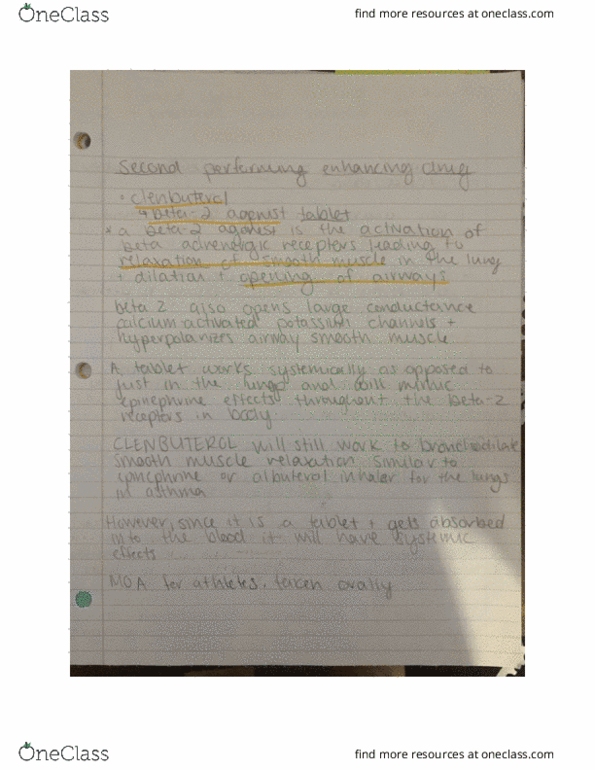 OneClass
find more resources at oneclass.com
Second performing enhancing drug
· clenbuterol
↳ beta-2 agonist tablet
* a beta-2 agonist is the activation of
beta adrenergic receptors leading to
relaxation of smooth muscle in the lung
+ dilation + opening of airways
beta 2 also opens large conductance
calcium activated potassium channels +
hyperpolarizers airway smooth muscle
A tablet works systemically as opposed to
just in the lungs and will mimic
epinephrine effects throughout the beta-2
receptors in body.
CLENBUTEROL will still work to bronchodilate
smooth muscle relaxation similar to
epinephrine or albuterol inhaler for the lungs
in asthma
However, since it is a tablet + gets absorbed
into the blood it will have systemic
effects
MOA for athletes. taken orally
OneClass
find more resources at oneclass.com